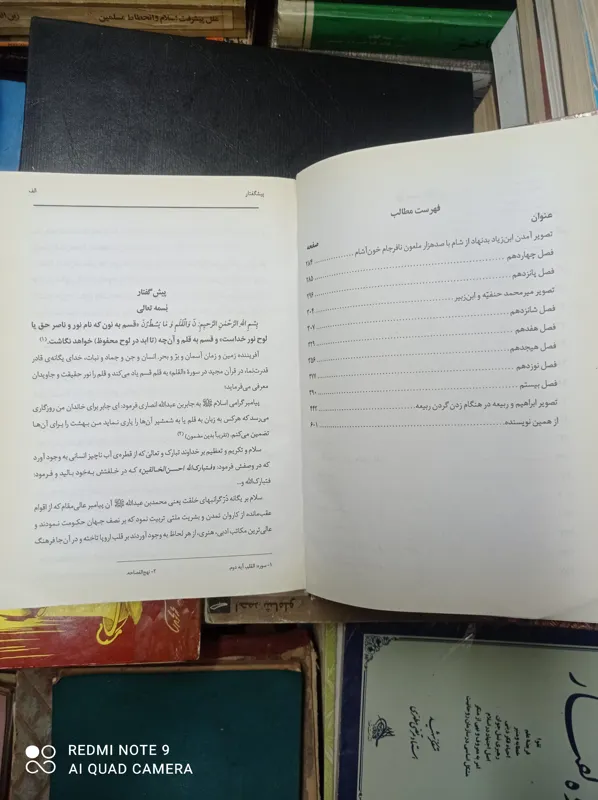 علل پیشرفت اسلام و انحطاط مسلمین
فهرست مطالب
عنوان
صفحه
تصویر آمدن ابن‌زیاد بدنهاد از شام با صدهزار ملعون نافرجام خون‌آشام
فصل چهاردهم ۱۸۴
فصل پانزدهم ۱۸۵
تصویر میرمحمد حنفیّه و ابن‌زبیر ۱۹۶
فصل شانزدهم ۲۰۴
فصل هفدهم ۲۰۷
فصل هیجدهم ۲۲۹
فصل نوزدهم ۲۵۶
فصل بیستم
تصویر ابراهیم و ربیعه در هنگام زدن گردن ربیعه ۲۹۰
از همین نویسنده
۶۰۱
پیشگفتار
الف
پیش گفتار
بسمه تعالی
بِسْمِ اللهِ الرَّحْمٰنِ الرَّحیمِ: نۤ وَالْقَلَمِ وَ مَا یَسْطُرُنَ «قسم به نون که نام نور و ناصر حق یا
لوح نور خداست» و قسم به قلم و آن‌چه (تا ابد در لوح محفوظ) خواهد نگاشت. (۱)
آفریننده زمین و زمان آسمان و برّ و بحر. انسان و جن و جماد و نبات، خدای یگانه‌ی قادر
قدرت‌نما، در قرآن مجید در سورهٔ «القلم» به قلم قسم یاد می‌کند و قلم را نور حقیقت و جاویدان
معرفی می‌فرماید؛
پیامبر گرامی اسلام ﷺ به جابربن عبدالله انصاری فرمود، ای جابر برای خاندان من روزگاری
می‌رسد که هرکس به زبان به قلم یا به شمشیر آن‌ها را یاری نماید من بهشت را برای آن‌ها
تضمین می‌کنم. (تقریباً بدین مضمون) (۲)
سلام و تکریم و تعظیم بر خداوند تبارک و تعالی که از قطره‌ی آب ناچیز انسانی به وجود آورد
که در وصفش فرمود، «فتبارک‌الله احسن‌الخالقین» کـه در خلقتش به‌خود بالید و فرمود:
فتبارک‌الله و...
سلام بر یگانه دُرّ گرانبهای خلقت یعنی محمدبن عبدالله ﷺ آن پیامبر عالی‌مقام که از اقوام
عقب‌مانده از کاروان تمدن و بشریت ملتی تربیت نمود که بر نصف جهان حکومت نمودند و
عالی‌ترین مکاتب ادبی، هنری، از هر لحاظ به وجود آوردند بر قلب اروپا تاخته و در آن‌جا فرهنگ
۱- سوره: القلم، آیه دوم.
۲- نهج‌الفصاحه
احمد شاملو
REDMI NOTE 9
AI QUAD CAMERA